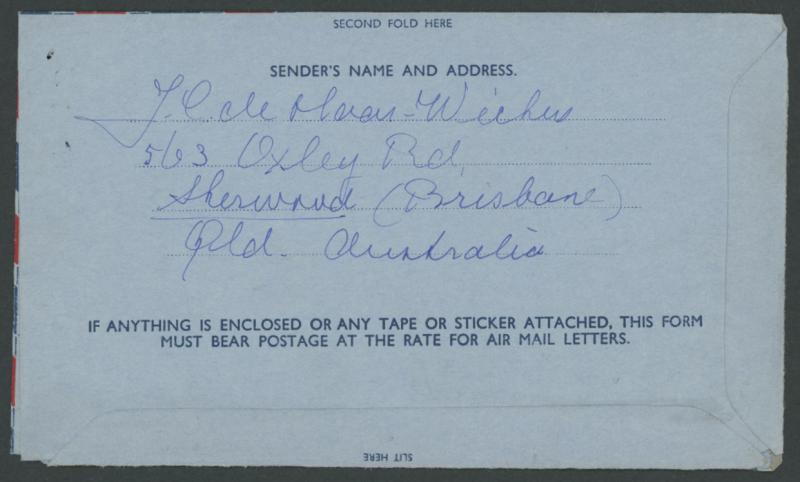 SECOND FOLD HERE
SENDER'S NAME AND ADDRESS.
J. C. de Haas-Wichers
563 Oxley Rd,
Sherwood (Brisbane)
Qld. Australia
IF ANYTHING IS ENCLOSED OR ANY TAPE OR STICKER ATTACHED, THIS FORM
MUST BEAR POSTAGE AT THE RATE FOR AIR MAIL LETTERS.
SLIT HERE